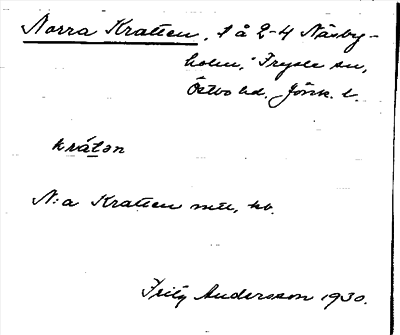 Norra Kratten, 1 å 2-4 Näsby-
holm, Fryele sn,
Östbo hd. Jönk. l.
krátən
N:a Kratten mtl, hb.
Fritz Andersson 1930.